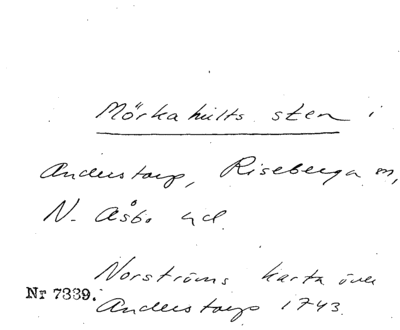 Mörkahults sten i
Anderstorp, Riseberga sn,
N. Åsbo hd.
Norströms karta över
Nr 7339.
Anderstorp 1743.